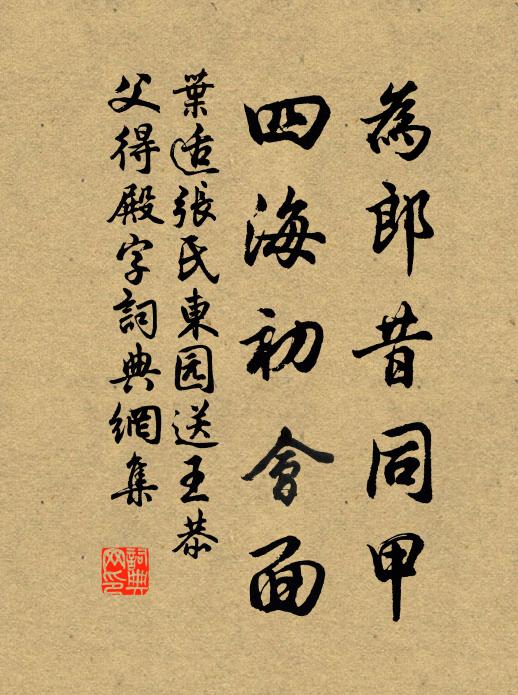 為郎昔同甲
四海初會面
葉适張氏東园送王恭
父得殿字詞典網集
詞典網印